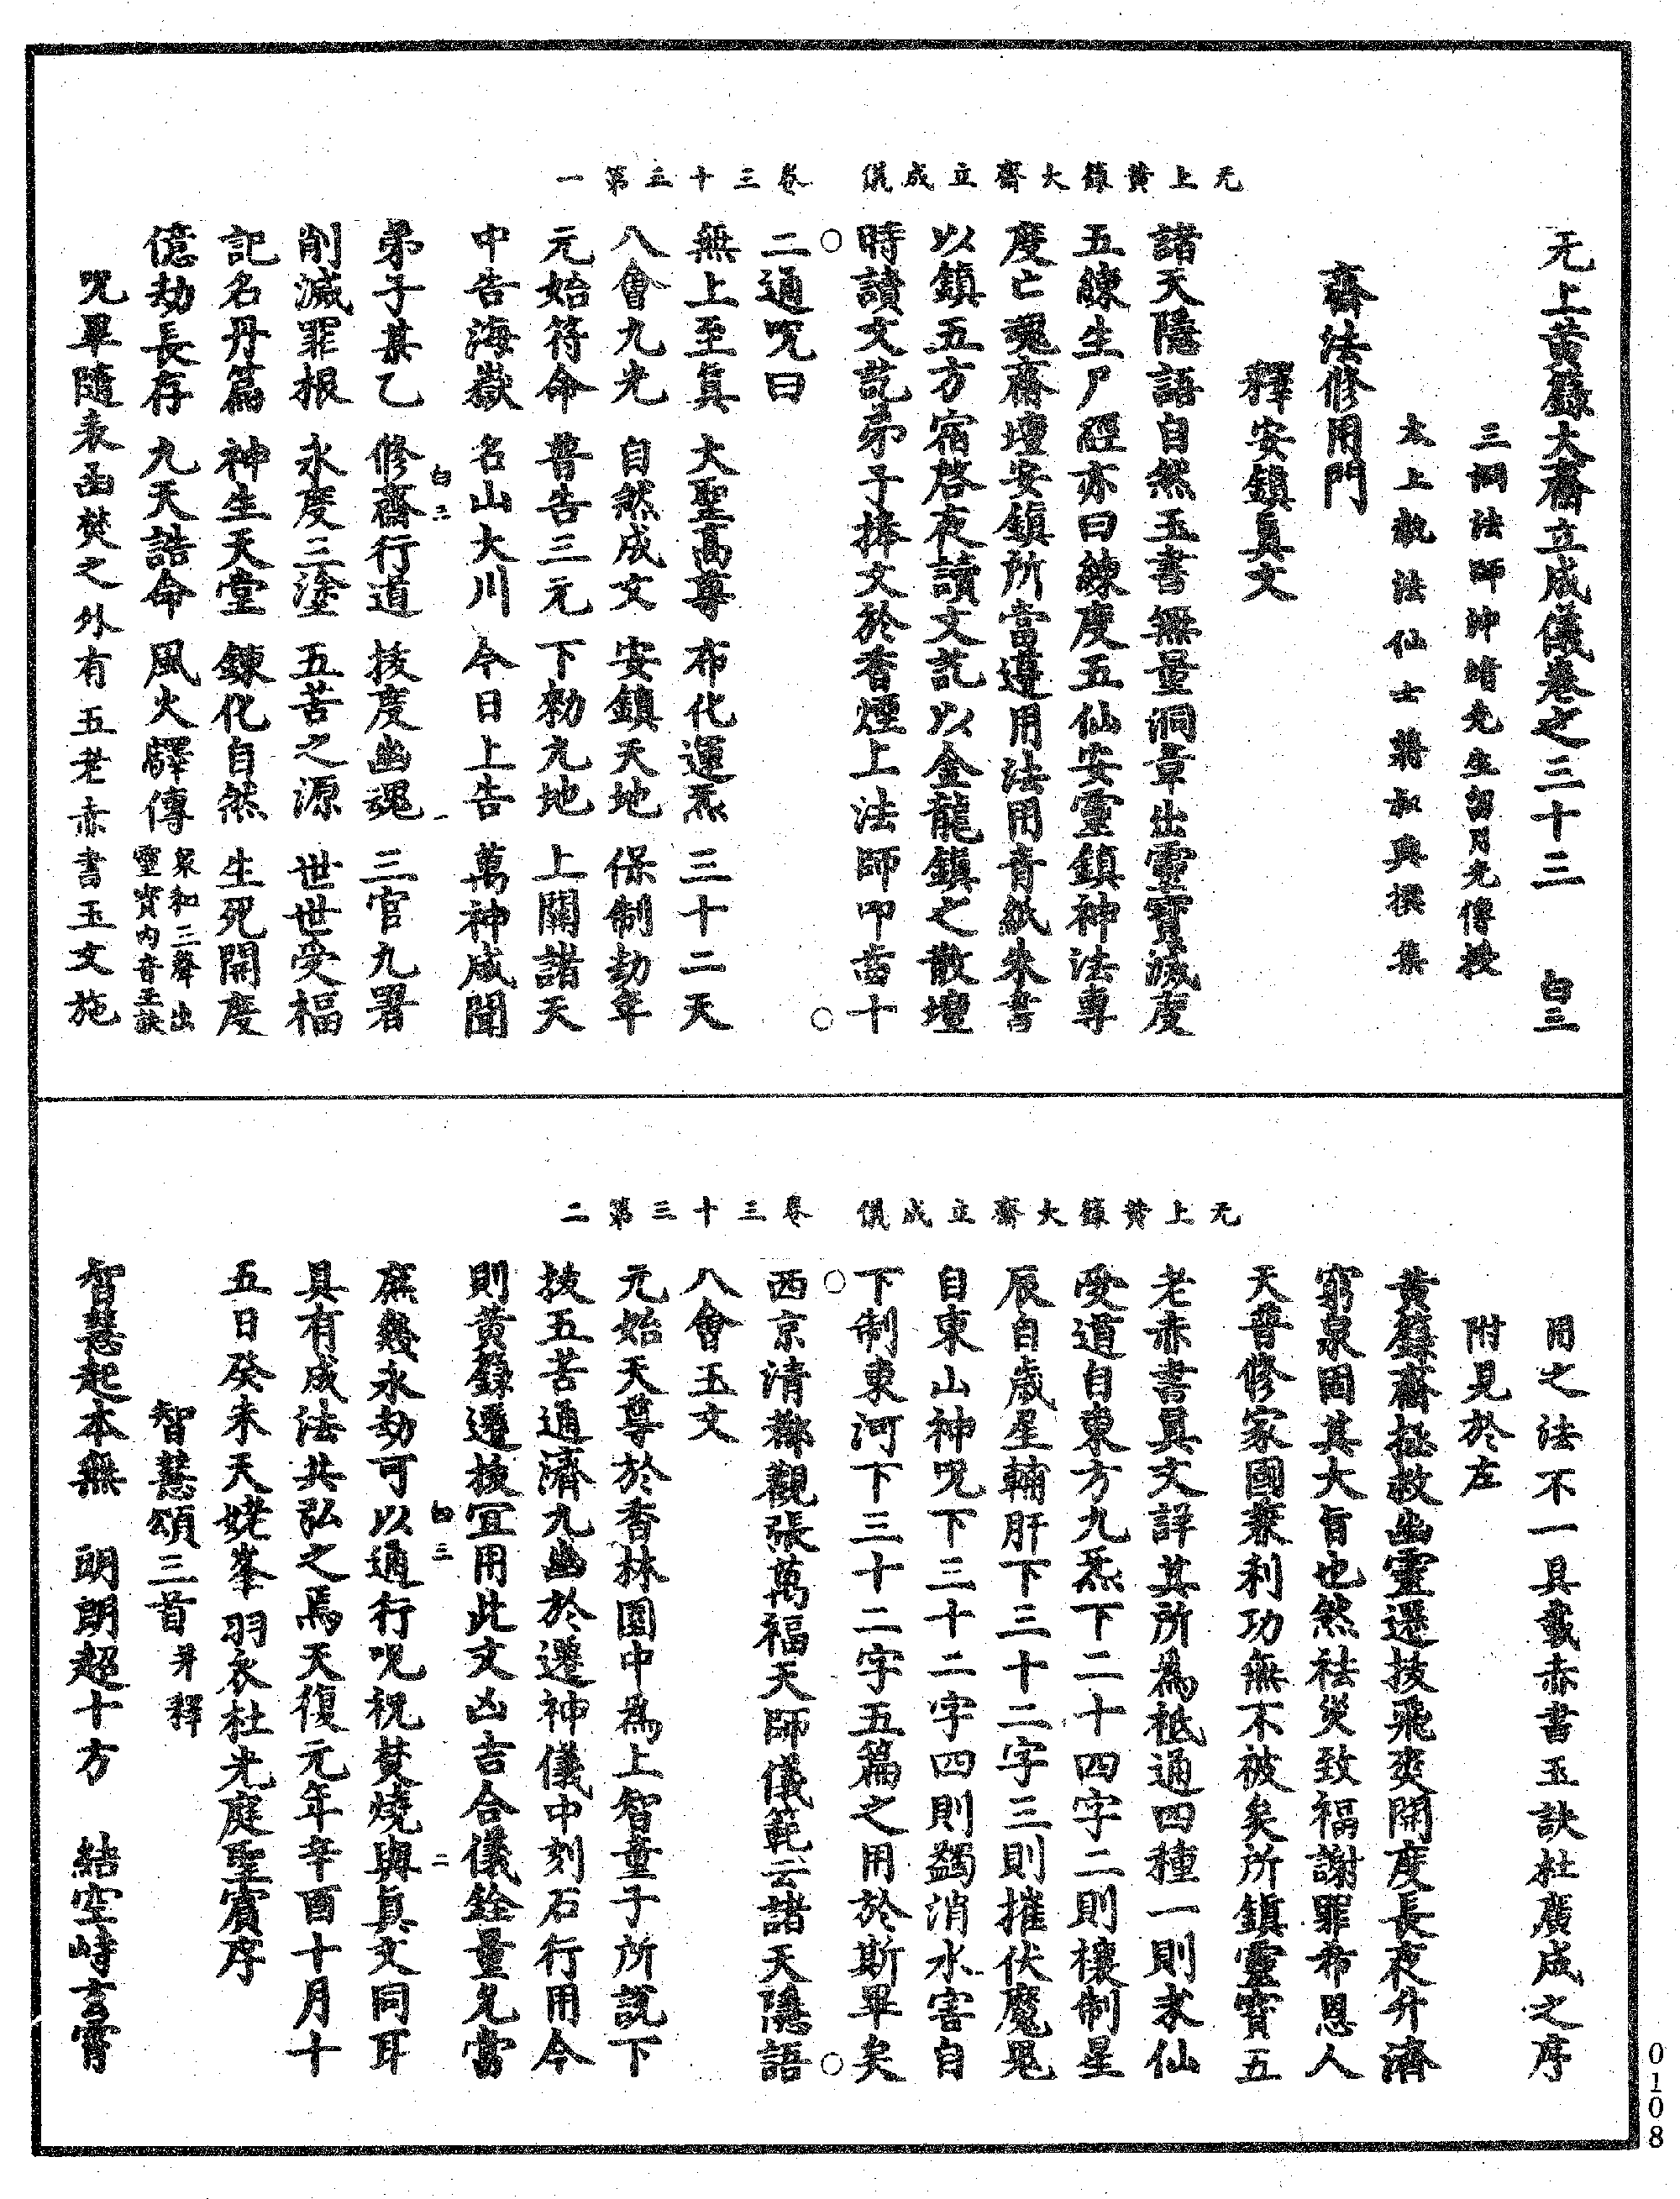 无上黃籙大齋立成儀 卷三十三第一
无上黃籙大齋立成儀卷之三十三 白三
三洞法師沖靖先生留用光傳授
太上執法仙士蔣叔輿撰集
齋法修用門
釋安鎮真文
諸天隱語自然玉書無量洞章出靈寶滅度
五鍊生尸經亦曰鍊度五仙安靈鎮神法專
度亡魂齋壇安鎮所當遵用法用青紙朱書
以鎮五方宿啓夜讀文訖以金龍鎮之散壇
時讀文訖弟子捧文於香煙上法師叩齒十
二通呪曰
無上至真 大聖高尊 布化運炁 三十二天
八會九光 自然成文 安鎮天地 保制劫年
元始符命 普告三元 下勑九地 上關諸天
中告海嶽 名山大川 今日上告 萬神咸聞
白三 一
弟子某乙 修齋行道 拔度幽魂 三官九署
削滅罪根 永度三塗 五苦之源 世世受福
記名丹篇 神生天堂 鍊化自然 生死開度
億劫長存 九天誥命 風火驛傳 衆和三聲出靈寶內音玉訣
呪畢隨表函焚之外有五老赤書玉文施
无上黃籙大齋立成儀 卷三十三第二
用之法不一具載赤書玉訣杜廣成之序
附見於左
黃籙齋拯救幽靈遷拔飛爽開度長夜升濟
窮泉固其大旨也然祛災致福謝罪希恩人
天普修家國兼利功無不被矣所鎮靈寶五
老赤書真文詳其所為秖通四種一則求仙
受道自東方九炁下二十四字二則禳制星
辰自歲星輔肝下三十二字三則摧伏魔鬼
自東山神呪下三十二字四則蠲消水害自
下制東河下三十二字五篇之用於斯畢矣
西京清都觀張萬福天師儀範云諸天隱語
八會玉文
元始天尊於香林園中為上智童子所說下
拔五苦通濟九幽於遷神儀中刻石行用今
則黃籙遷拔宜用此文凶吉合儀銓量允當
白三 二
庶幾永劫可以通行呪祝焚燒與真文同耳
具有成法共弘之焉天復元年辛酉十月十
五日癸未天姥峯羽衣杜光庭聖賓序
智慧頌三首并釋
智慧起本無 朗朗超十方 結空峙玄霄
0108